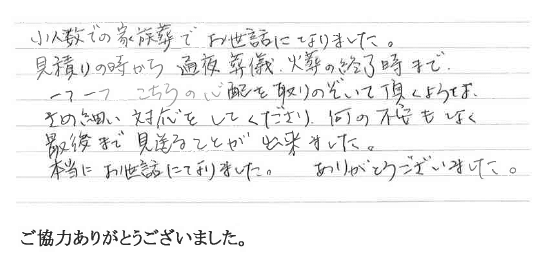 小人数での家族葬でお世話になりました。
見積りの時から 通夜 葬儀、火葬の終了時まで、
一つ一つ こちらの心配を取りのぞいて頂くような、
きめ細い 対応を してくださり、何の不安もなく
最後まで 見送ることが 出来ました。
本当に お世話になりました。 ありがとうございました。
ご協力ありがとうございました。